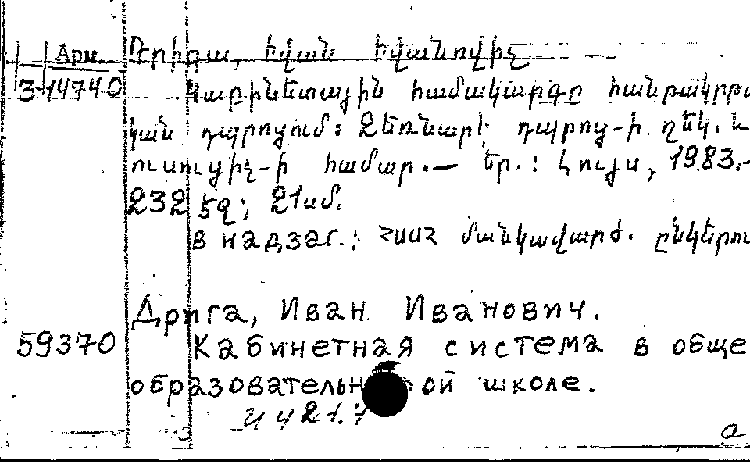 Арм. Դրիգա, Իվան Իվանովիչ
3-14740 Կաբինետային համակարգը հանրակրթա
կան դպրոցում: Ձեռնարկ դպրոց-ի ղեկ. և
ուսուցիչ-ի համար.— Եր.: Լույս, 1983.-
232 էջ; 21սմ.
В надзаг.: ՀՍՍՀ մանկավարժ. ընկերու
Дрига, Иван Иванович.
59370 Кабинетная система в обще
образовательной школе.
И 421.7
а